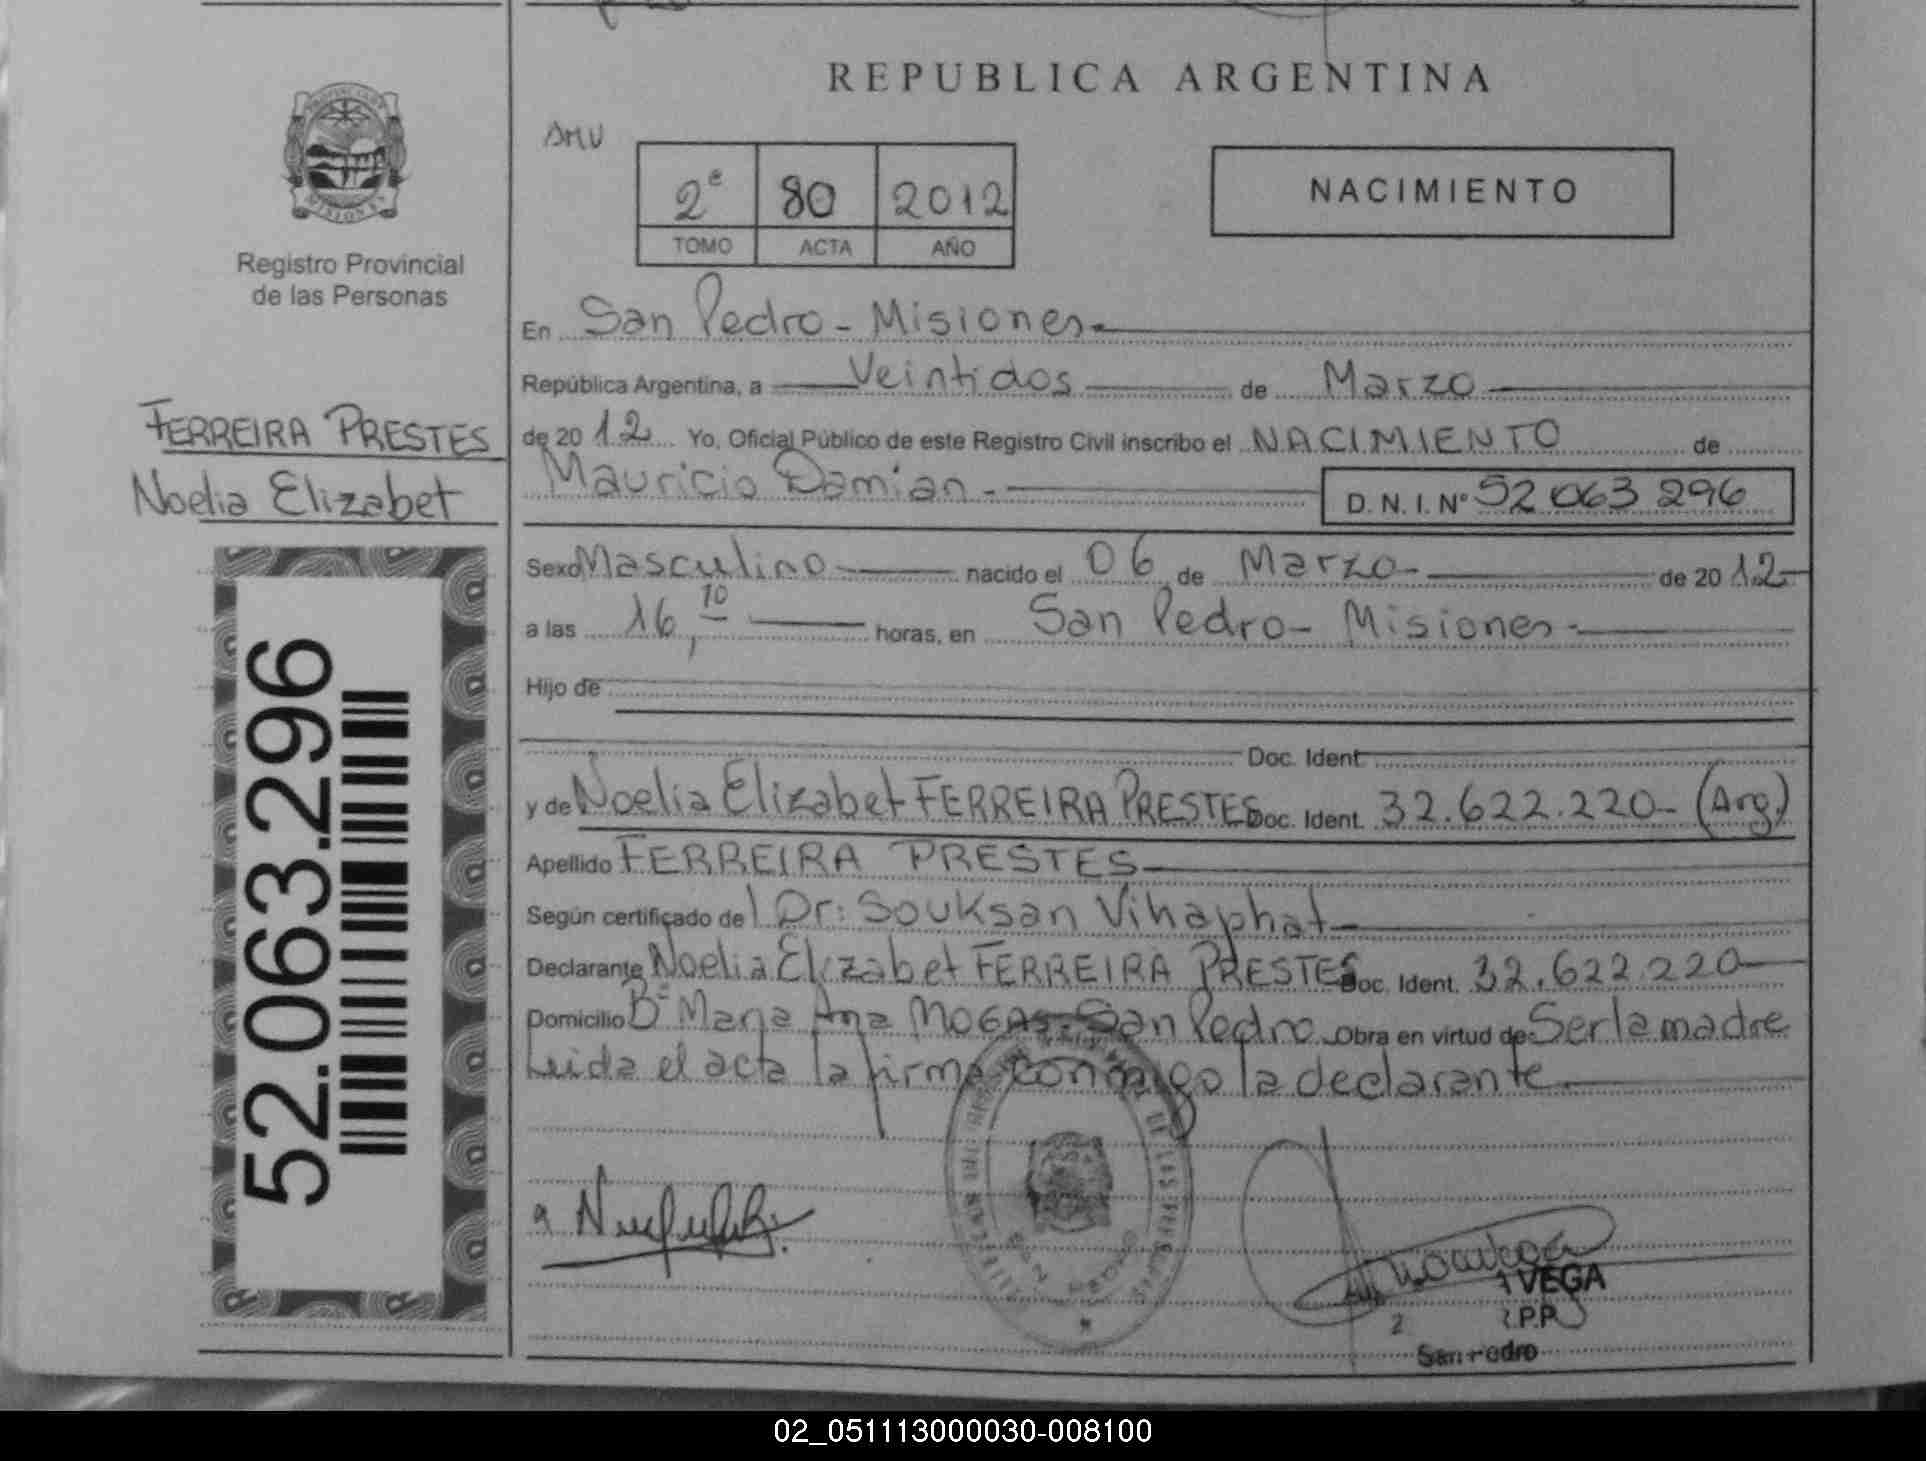 REPUBLICA ARGENTINA
PROVINCIA DE
MISIONES
Registro Provincial
de las Personas
SMU
2º 80 2012
TOMO ACTA AÑO
NACIMIENTO
En San Pedro - Misiones
República Argentina, a Veintidos de Marzo
de 20 12 Yo, Oficial Público de este Registro Civil inscribo el NACIMIENTO de
Mauricio Damian - D. N. I. Nº 52 063 296
FERREIRA PRESTES
Noelia Elizabet
52.063.296
Sexo Masculino nacido el 06 de Marzo de 20 12
a las 16,10 horas, en San Pedro - Misiones
Hijo de
Doc. Ident
y de Noelia Elizabet FERREIRA PRESTES Doc. Ident. 32.622.220 - (Arg)
Apellido FERREIRA PRESTES
Según certificado del Dr: Souksan Vihaphat
Declarante Noelia Elizabet FERREIRA PRESTES Doc. Ident. 32.622.220
Domicilio Bº Maria Ana MOGAS - San Pedro Obra en virtud de Ser la madre
Leida el acta la firma conmigo la declarante
VEGA
San Pedro
02_051113000030-008100